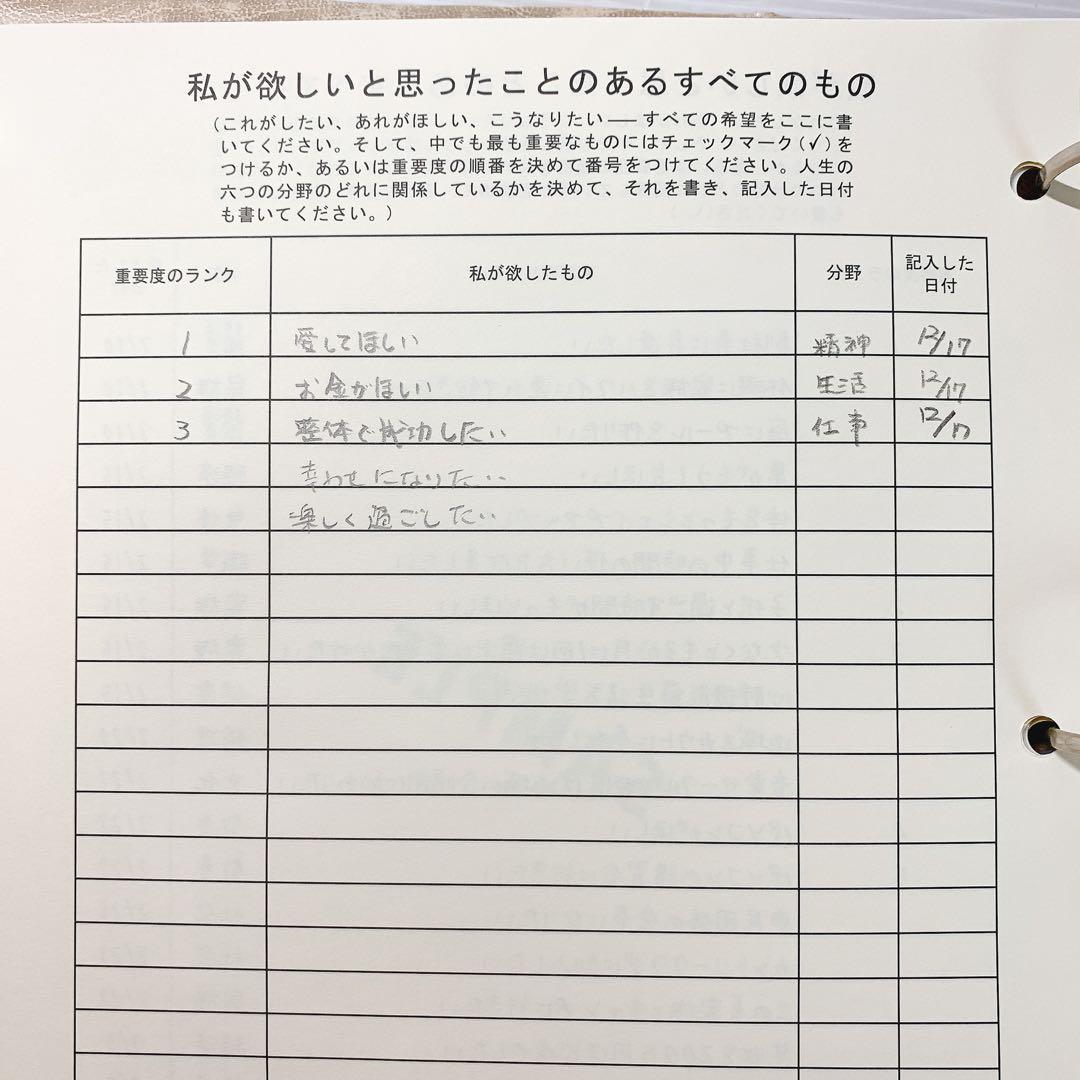 私が欲しいと思ったことのあるすべてのもの
(これがしたい、あれがほしい、こうなりたい――すべての希望をここに書
いてください。そして、中でも最も重要なものにはチェックマーク(✓)を
つけるか、あるいは重要度の順番を決めて番号をつけてください。人生の
六つの分野のどれに関係しているかを決めて、それを書き、記入した日付
も書いてください。)
重要度のランク 私が欲したもの 分野 記入した
日付
1 愛してほしい 精神 12/17
2 お金がほしい 生活 12/17
3 整体で成功したい 仕事 12/17
幸わせになりたい
楽しく過ごしたい